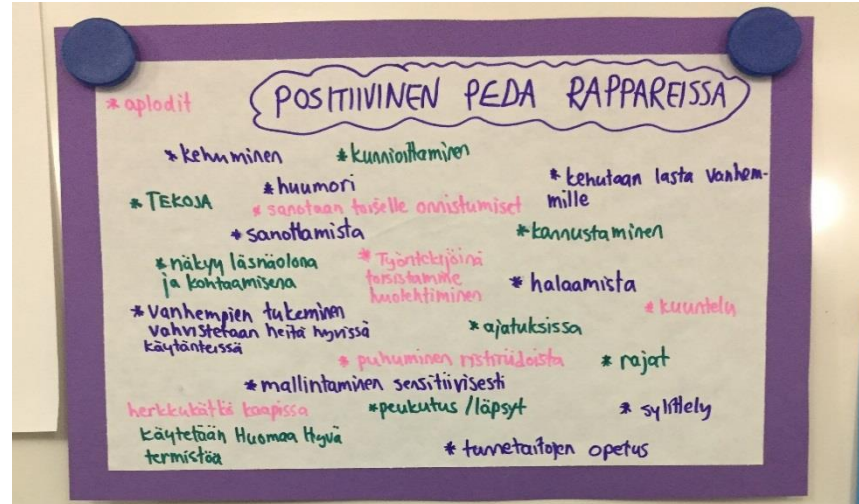 POSITIIVINEN PEDA RAPPAREISSA
* aplodit
* kehuminen
* kunnioittaminen
* huumori
* kehutaan lasta vanhem-
mille
* TEKOJA
* sanotaan toiselle onnistumiset
* sanottamista
* kannustaminen
* näkyy läsnäolona
ja kohtaamisena
* Työntekijöinä
toisistamme
huolehtiminen
* halaamista
* kuuntelu
* vanhempien tukeminen
vahvistetaan heitä hyvissä
käytänteissä
* ajatuksissa
* puhuminen ristiriidoista
* rajat
* mallintaminen sensitiivisesti
herkkukätkö kaapissa
* peukutus / läpsyt
* sylittely
käytetään Huomaa Hyvä
termistöä
* tunnetaitojen opetus